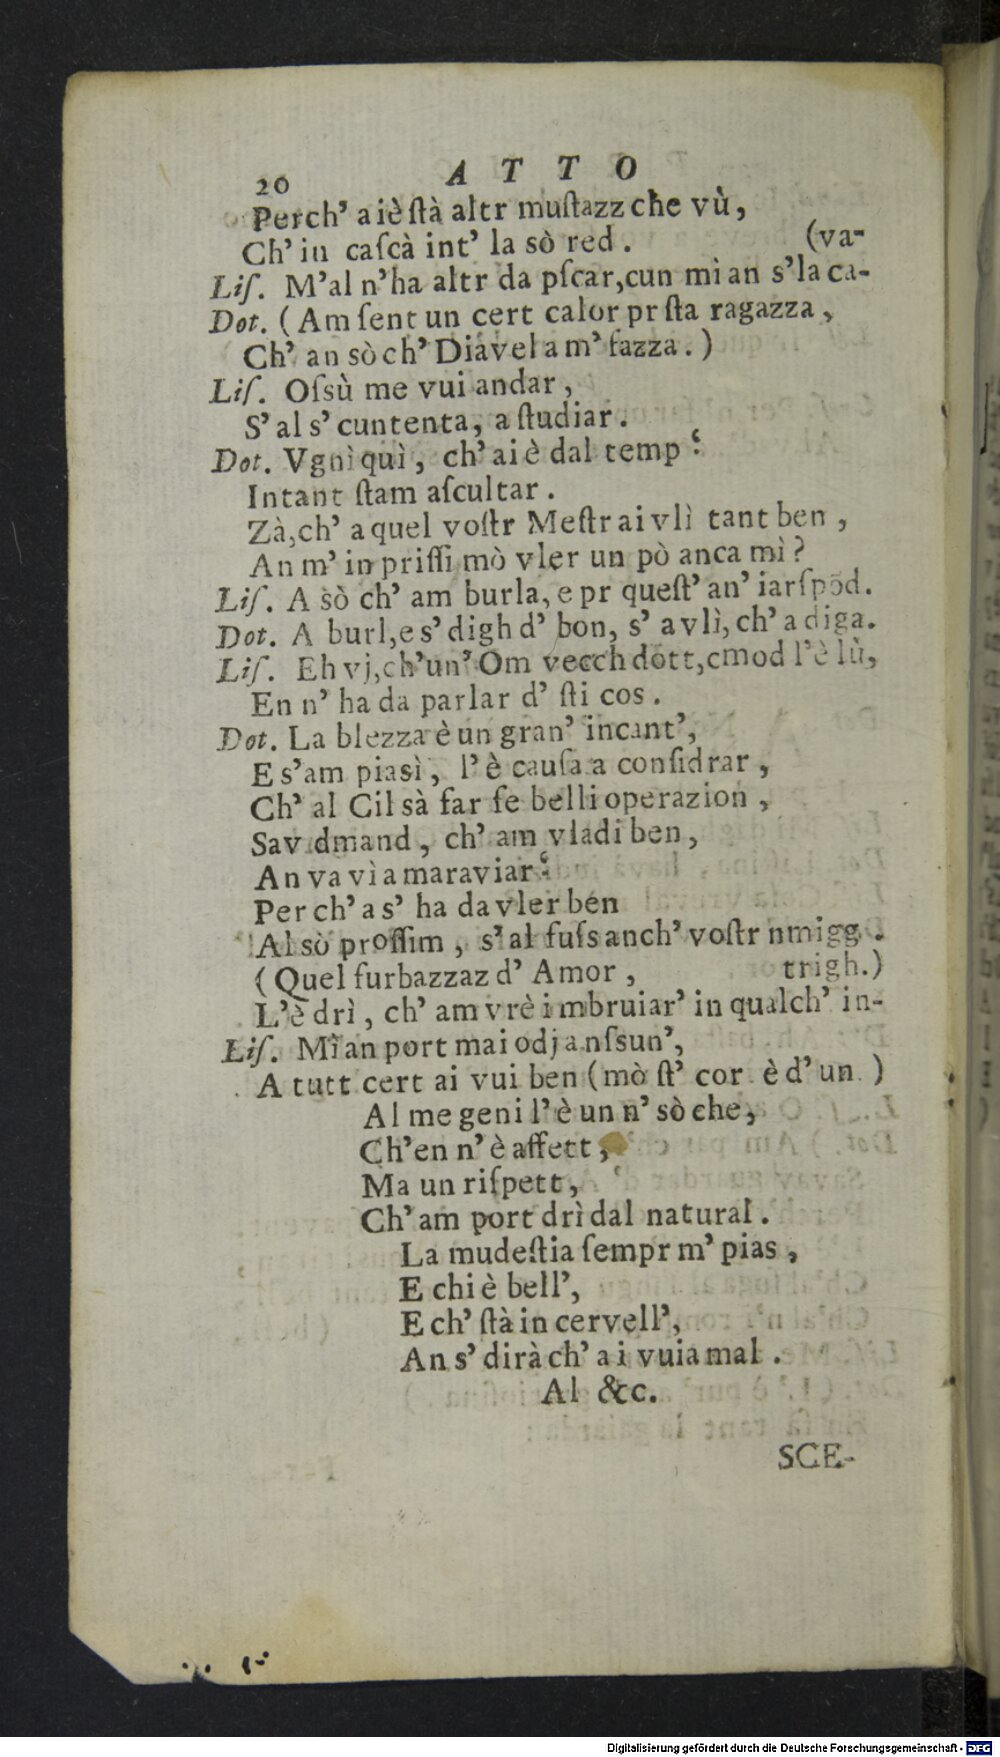 20 ATTO
Perch' a iè ſtà altr muſtazz che vù,
Ch' in caſcà int' la sò red. (va-
Liſ. M'al n'ha altr da pſcar,cun mì an s'la ca-
Dot. (Am ſent un cert calor pr ſta ragazza,
Ch' an sò ch' Diavel a m' fazza.)
Liſ. Oſsù me vui andar,
S' al s' cuntenta, a ſtudiar.
Dot. Vgnì quì, ch' ai è dal temp:
Intant ſtam aſcultar.
Zà,ch' a quel voſtr Meſtr ai vlì tant ben,
An m' in priſſi mò vler un pò anca mì?
Liſ. A sò ch' am burla, e pr queſt' an' iarſpõd.
Dot. A burl,e s' digh d' bon, s' a vlì, ch' a diga.
Liſ. Eh vj,ch'un' Om vecch dott,cmod l'è lù,
En n' ha da parlar d' ſti cos.
Dot. La blezza è un gran' incant',
E s'am piasì, l' è cauſa a conſidrar,
Ch' al Cil sà far ſe belli operazion,
Sav dmand, ch' am vladi ben,
An va vì a maraviar:
Perch' a s' ha da vler ben
Al sò proſſim, s' al fuſs anch' voſtr nmigg.
(Quel furbazzaz d' Amor, trigh.)
L'è drì, ch' am vrè imbruiar' in qualch' in-
Liſ. Mì an port mai odj a nſsun',
A tutt cert ai vui ben (mò ſt' cor è d' un)
Al me geni l' è un n' sò che,
Ch'en n' è affett,
Ma un riſpett,
Ch' am port drì dal natural.
La mudeſtia ſempr m' pias,
E chi è bell',
E ch' ſtà in cervell',
An s' dirà ch' a i vuia mal.
Al &c.
SCE-
Digitalisierung gefördert durch die Deutsche Forschungsgemeinschaft - DFG